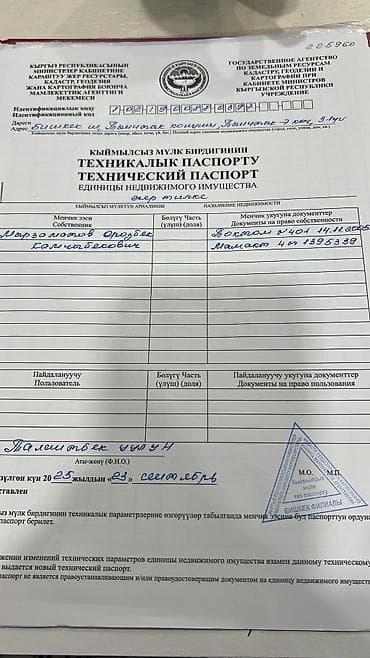 205960
КЫРГЫЗ РЕСПУБЛИКАСЫНЫН
МИНИСТРЛЕР КАБИНЕТИНЕ
КАРАШТУУ ЖЕР РЕСУРСТАРЫ,
КАДАСТР, ГЕОДЕЗИЯ
ЖАНА КАРТОГРАФИЯ БОЮНЧА
МАМЛЕКЕТТИК АГЕНТТИГИ
МЕКЕМЕСИ
ГОСУДАРСТВЕННОЕ АГЕНТСТВО
ПО ЗЕМЕЛЬНЫМ РЕСУРСАМ
КАДАСТРУ, ГЕОДЕЗИИ И
КАРТОГРАФИИ ПРИ
КАБИНЕТЕ МИНИСТРОВ
КЫРГЫЗСКОЙ РЕСПУБЛИКИ
УЧРЕЖДЕНИЕ
Идентификациялык коду
Идентификационный код
Дареги
Адрес
Бишкек ш,
КЫЙМЫЛСЫЗ МҮЛК БИРДИГИНИН
ТЕХНИКАЛЫК ПАСПОРТУ
ТЕХНИЧЕСКИЙ ПАСПОРТ
ЕДИНИЦЫ НЕДВИЖИМОГО ИМУЩЕСТВА
КЫЙМЫЛСЫЗ МҮЛКТҮН АРНАЛЫШЫ НАЗНАЧЕНИЕ НЕДВИЖИМОСТИ
Менчик ээси
Собственник
Бөлүгү Часть
(үлүш) (доля)
Менчик укугуна документтер
Документы на право собственности
Марзаматов Орозбек
Камчыбекович
Токтом №401
Мамакт 4п 1395339
Пайдалануучу
Пользователь
Бөлүгү Часть
(үлүш) (доля)
Пайдалануу укугуна документтер
Документы на право пользования
уулу
Аты-жөнү (Ф.И.О.)
М.О. М.П.
зүлгөн күн 2025 жылдын «23» сентябрь
ставлен
Кыймылсыз
мүлк
тех паспорту
БИШКЕК ФИЛИАЛЫ
ыз мүлк бирдигинин техникалык параметрлерине өзгөрүүлөр табылганда менчик ээсине бул паспорттун ордуна
паспорт берилет.
жении изменений технических параметров единицы недвижимого имущества взамен данному техническому
выдается новый технический паспорт.
паспорт не является правоустанавливающим и/или правоудостоверящим документом на единицу недвижимого имущест